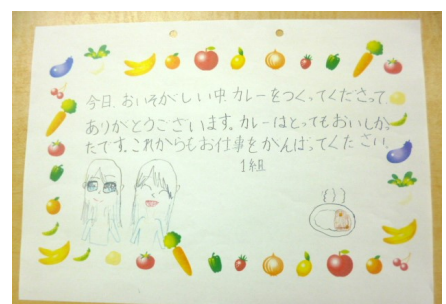 今日、おいそがしい中、カレーをつくってくださって、
ありがとうございます。カレーはとってもおいしかっ
たです。これからもお仕事をがんばってください。
1組